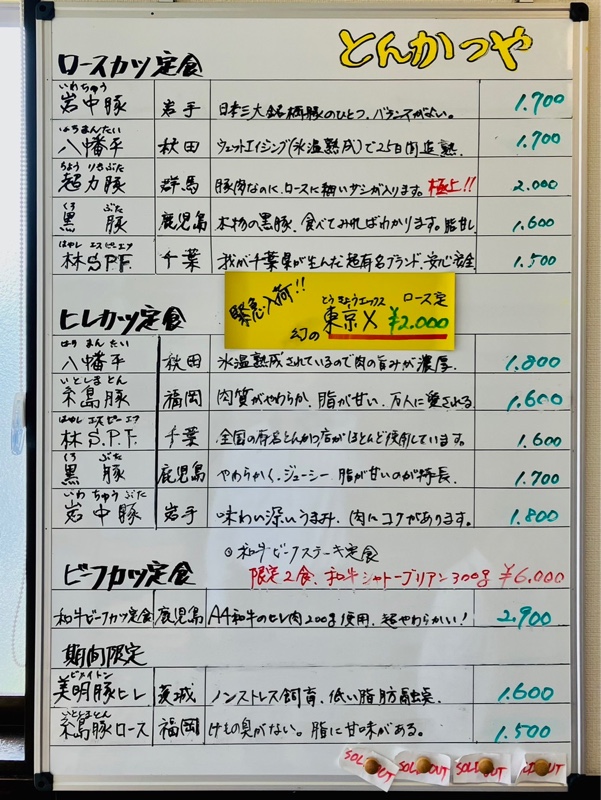 とんかつや
ロースカツ定食
いわちゅう
岩中豚 岩手 日本三大銘柄豚のひとつ、バランスがよい。 1.700
はちまんたい
八幡平 秋田 ウェットエイジング(氷温熟成)で25日間追熟 1.700
ちょうりきぶた
超力豚 群馬 豚肉なのに、ロースに細いサシが入ります。極上!! 2.000
くろ ぶた
黒豚 鹿児島 本物の黒豚、食べてみればわかります。脂甘し 1.600
はやし エスピーエフ
林S.P.F. 千葉 我が千葉県が生んだ超有名ブランド、安心安全 1.500
緊急入荷!!
とうきょうエックス ロース定
幻の東京X ¥2.000
ヒレカツ定食
はちまんたい
八幡平 秋田 氷温熟成されているので肉の旨みが濃厚。 1.800
いとしまとん
糸島豚 福岡 肉質がやわらか、脂が甘い、万人に愛される 1.600
はやし エスピーエフ
林S.P.F. 千葉 全国の有名とんかつ店がほとんど使用しています。 1.600
くろ ぶた
黒豚 鹿児島 やわらかく、ジューシー 脂が甘いのが特長、 1.700
いわちゅうぶた
岩中豚 岩手 味わい深いうまみ、肉にコクがあります。 1.800
◎和牛ビーフステーキ定食
ビーフカツ定食 限定2食、和牛シャトーブリアン300g ¥6.000
和牛ビーフカツ定食 鹿児島 A4和牛のヒレ肉200g使用、超やわらかい! 2.900
期間限定
ビメイトン
美明豚ヒレ 茨城 ノンストレス飼育、低い脂肪融点 1.600
いとしまとん
糸島豚ロース 福岡 けもの臭がない。脂に甘味がある。 1.500
SOLD OUT SOLD OUT SOLD OUT SOLD OUT